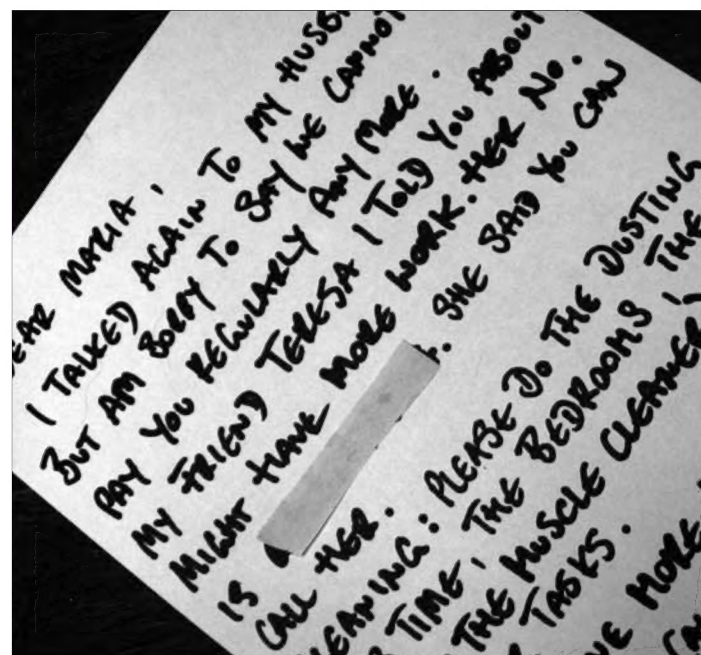 EAR MARIA,
I TALKED AGAIN TO MY HUSB
BUT AM SORRY TO SAY WE CANNOT
PAY YOU REGULARLY ANY MORE.
MY FRIEND TERESA I TOLD YOU ABOUT
MIGHT HAVE MORE WORK. HER NO.
IS . SHE SAID YOU CAN
CALL HER.
EANING: PLEASE DO THE DUSTING
TIME, THE BEDROOMS, THE
THE MUSCLE CLEANER,
TASKS.
VE MORE
CA